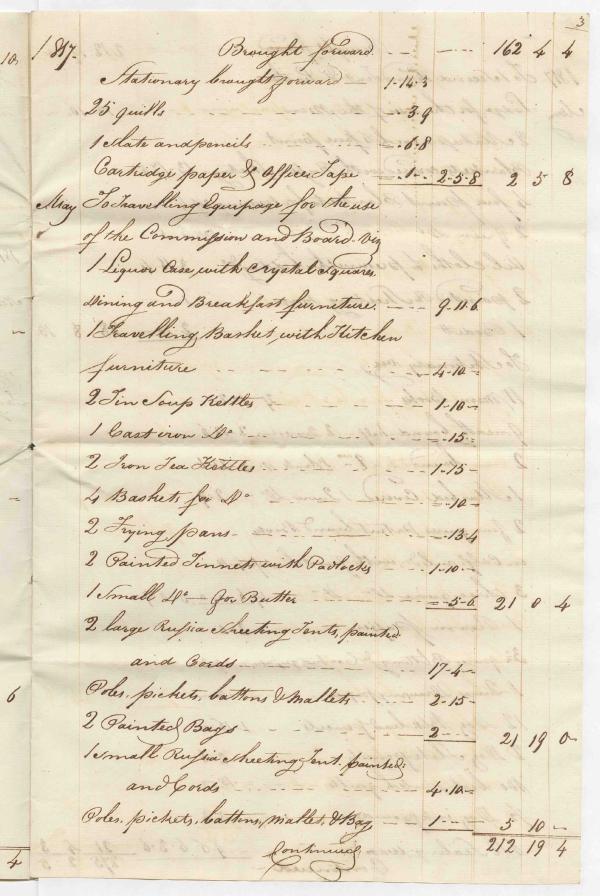 3
1817. Brought forward. 162 4 4
Stationary brought forward 1-14-3
25 quills -3-9
1 Slate and pencils -6-8
Cartridge paper & Office Tape -1- 2-5-8 2 5 8
May To Travelling Equipage for the use
of the Commission and Board Viz
1 Liquor Case, with Crystal Squares
Dining and Breakfast furniture. 9-11-6
1 Travelling Basket, with Kitchen
furniture 4-10-
2 Tin Soup Kettles 1-10-
1 Cast iron Do -15-
2 Iron Tea Kettles 1-15-
4 Baskets for Do -10-
2 Frying pans -13-4
2 Painted Tinnets with Padlocks 1-10-
1 Small Do for Butter -5-6 21 0 4
2 large Russia Sheeting Tents, painted
and Cords 17-4-
Poles, pickets, battons & Mallets 2-15-
2 Painted Bags 2 21 19 0
1 Small Russia Sheeting Tent. painted
and Cords 4-10-
Poles, pickets, battons, Mallet, & Bag 1 5 10 -
212 19 4
Continued